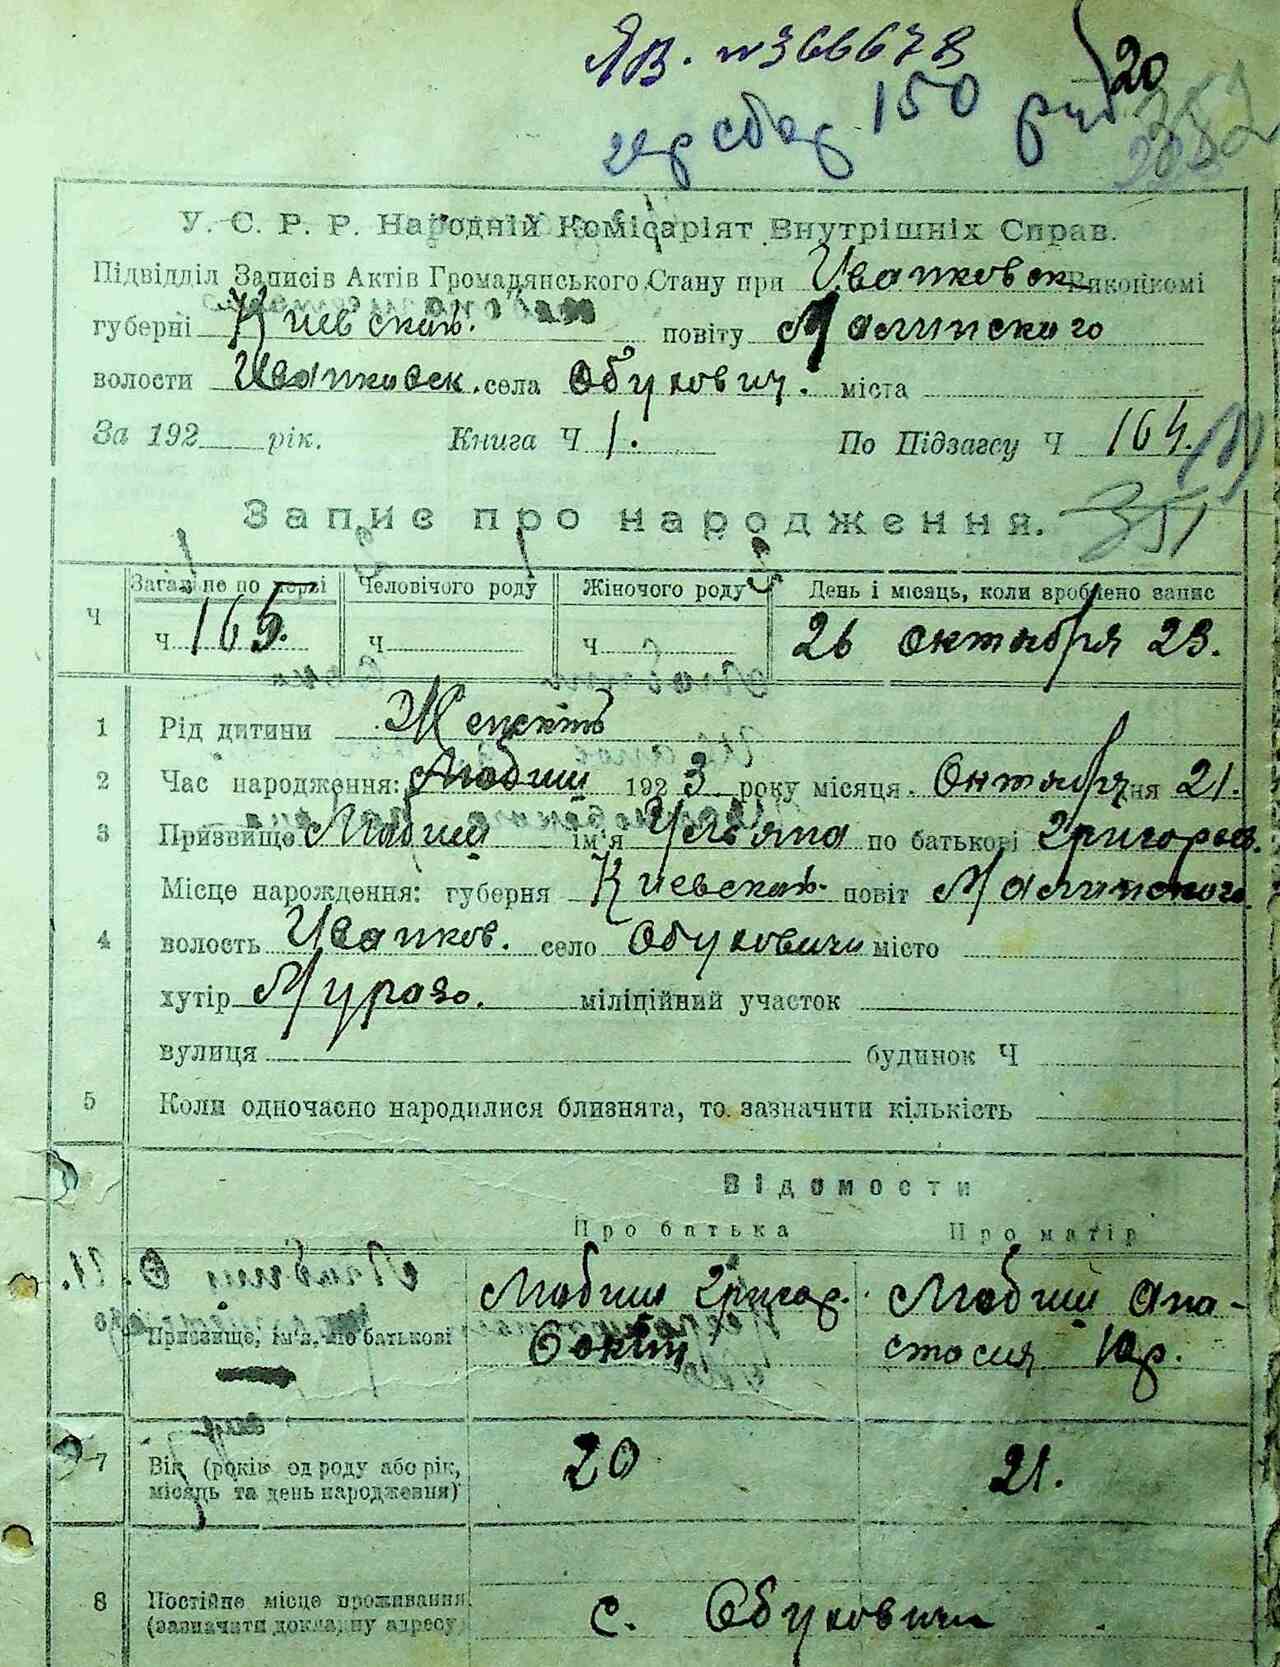 ЯВ. № 366678
20
гербсбор 150 руб
352
У. С. Р. Р. Народній Комісаріят Внутрішніх Справ.
Підвідділ Записів Актів Громадянського Стану при Иванковск Виконкомі
губерні Киевской. повіту Малинского
волости Иванковск. села Обукович. міста
За 192 рік. Книга Ч 1. По Підзагсу Ч 164.
351
Запис про народження.
Загальне по черзі Человічого роду Жіночого роду День і місяць, коли зроблено запис
Ч ч. 165. ч. ч. 26 октября 23.
1 Рід дитини Женский
2 Час народження: Любиш 1923 року місяця Октября дня 21.
3 Призвище Любиш ім'я Ульяна по батькові Григорьев.
Місце нарождення: губерня Киевской. повіт Малинского.
4 волость Иванков. село Обуковичи місто
хутір Мураво. міліційний участок
вулиця будинок Ч
5 Коли одночасно народилися близнята, то зазначити кількість
Відомости
Про батька Про матір
Любиш Григор. Любиш Ана-
Призвище, ім'я, по батькові стасия Юр.
7 Вік (років од роду або рік, 20 21.
місяць та день народження)
8 Постійне місце проживання с. Обуковичи
(зазначити докладну адресу)